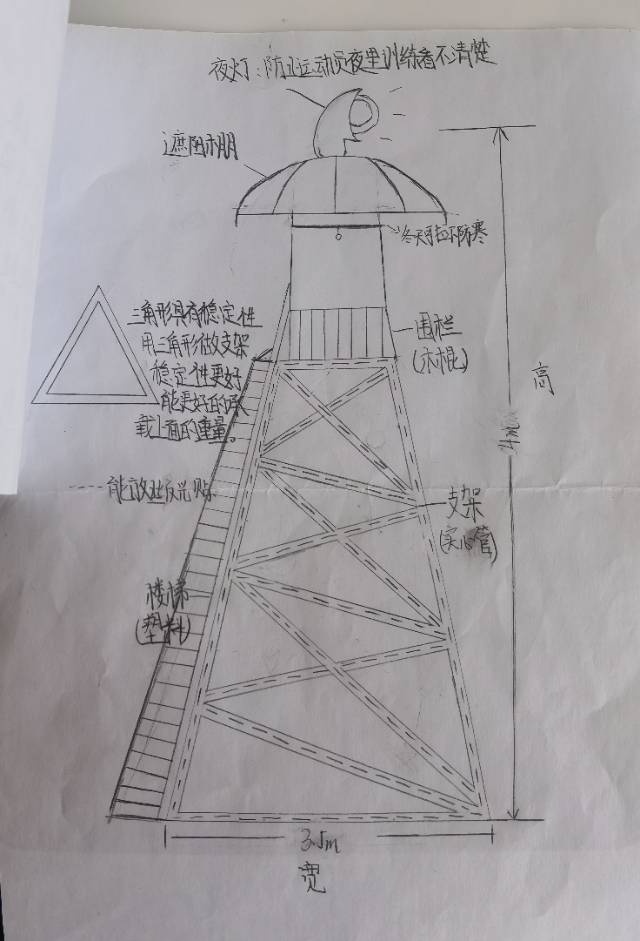 夜灯:防止运动员夜里训练看不清楚
遮阴棚
冬天可拉下防寒
三角形具有稳定性
用三角形做支架
稳定性更好
能更好的承
载上面的重量。
围栏
(木棍)
高
4m
能放业反光贴
支架
(实心管)
楼梯
(塑料)
3.5m
宽